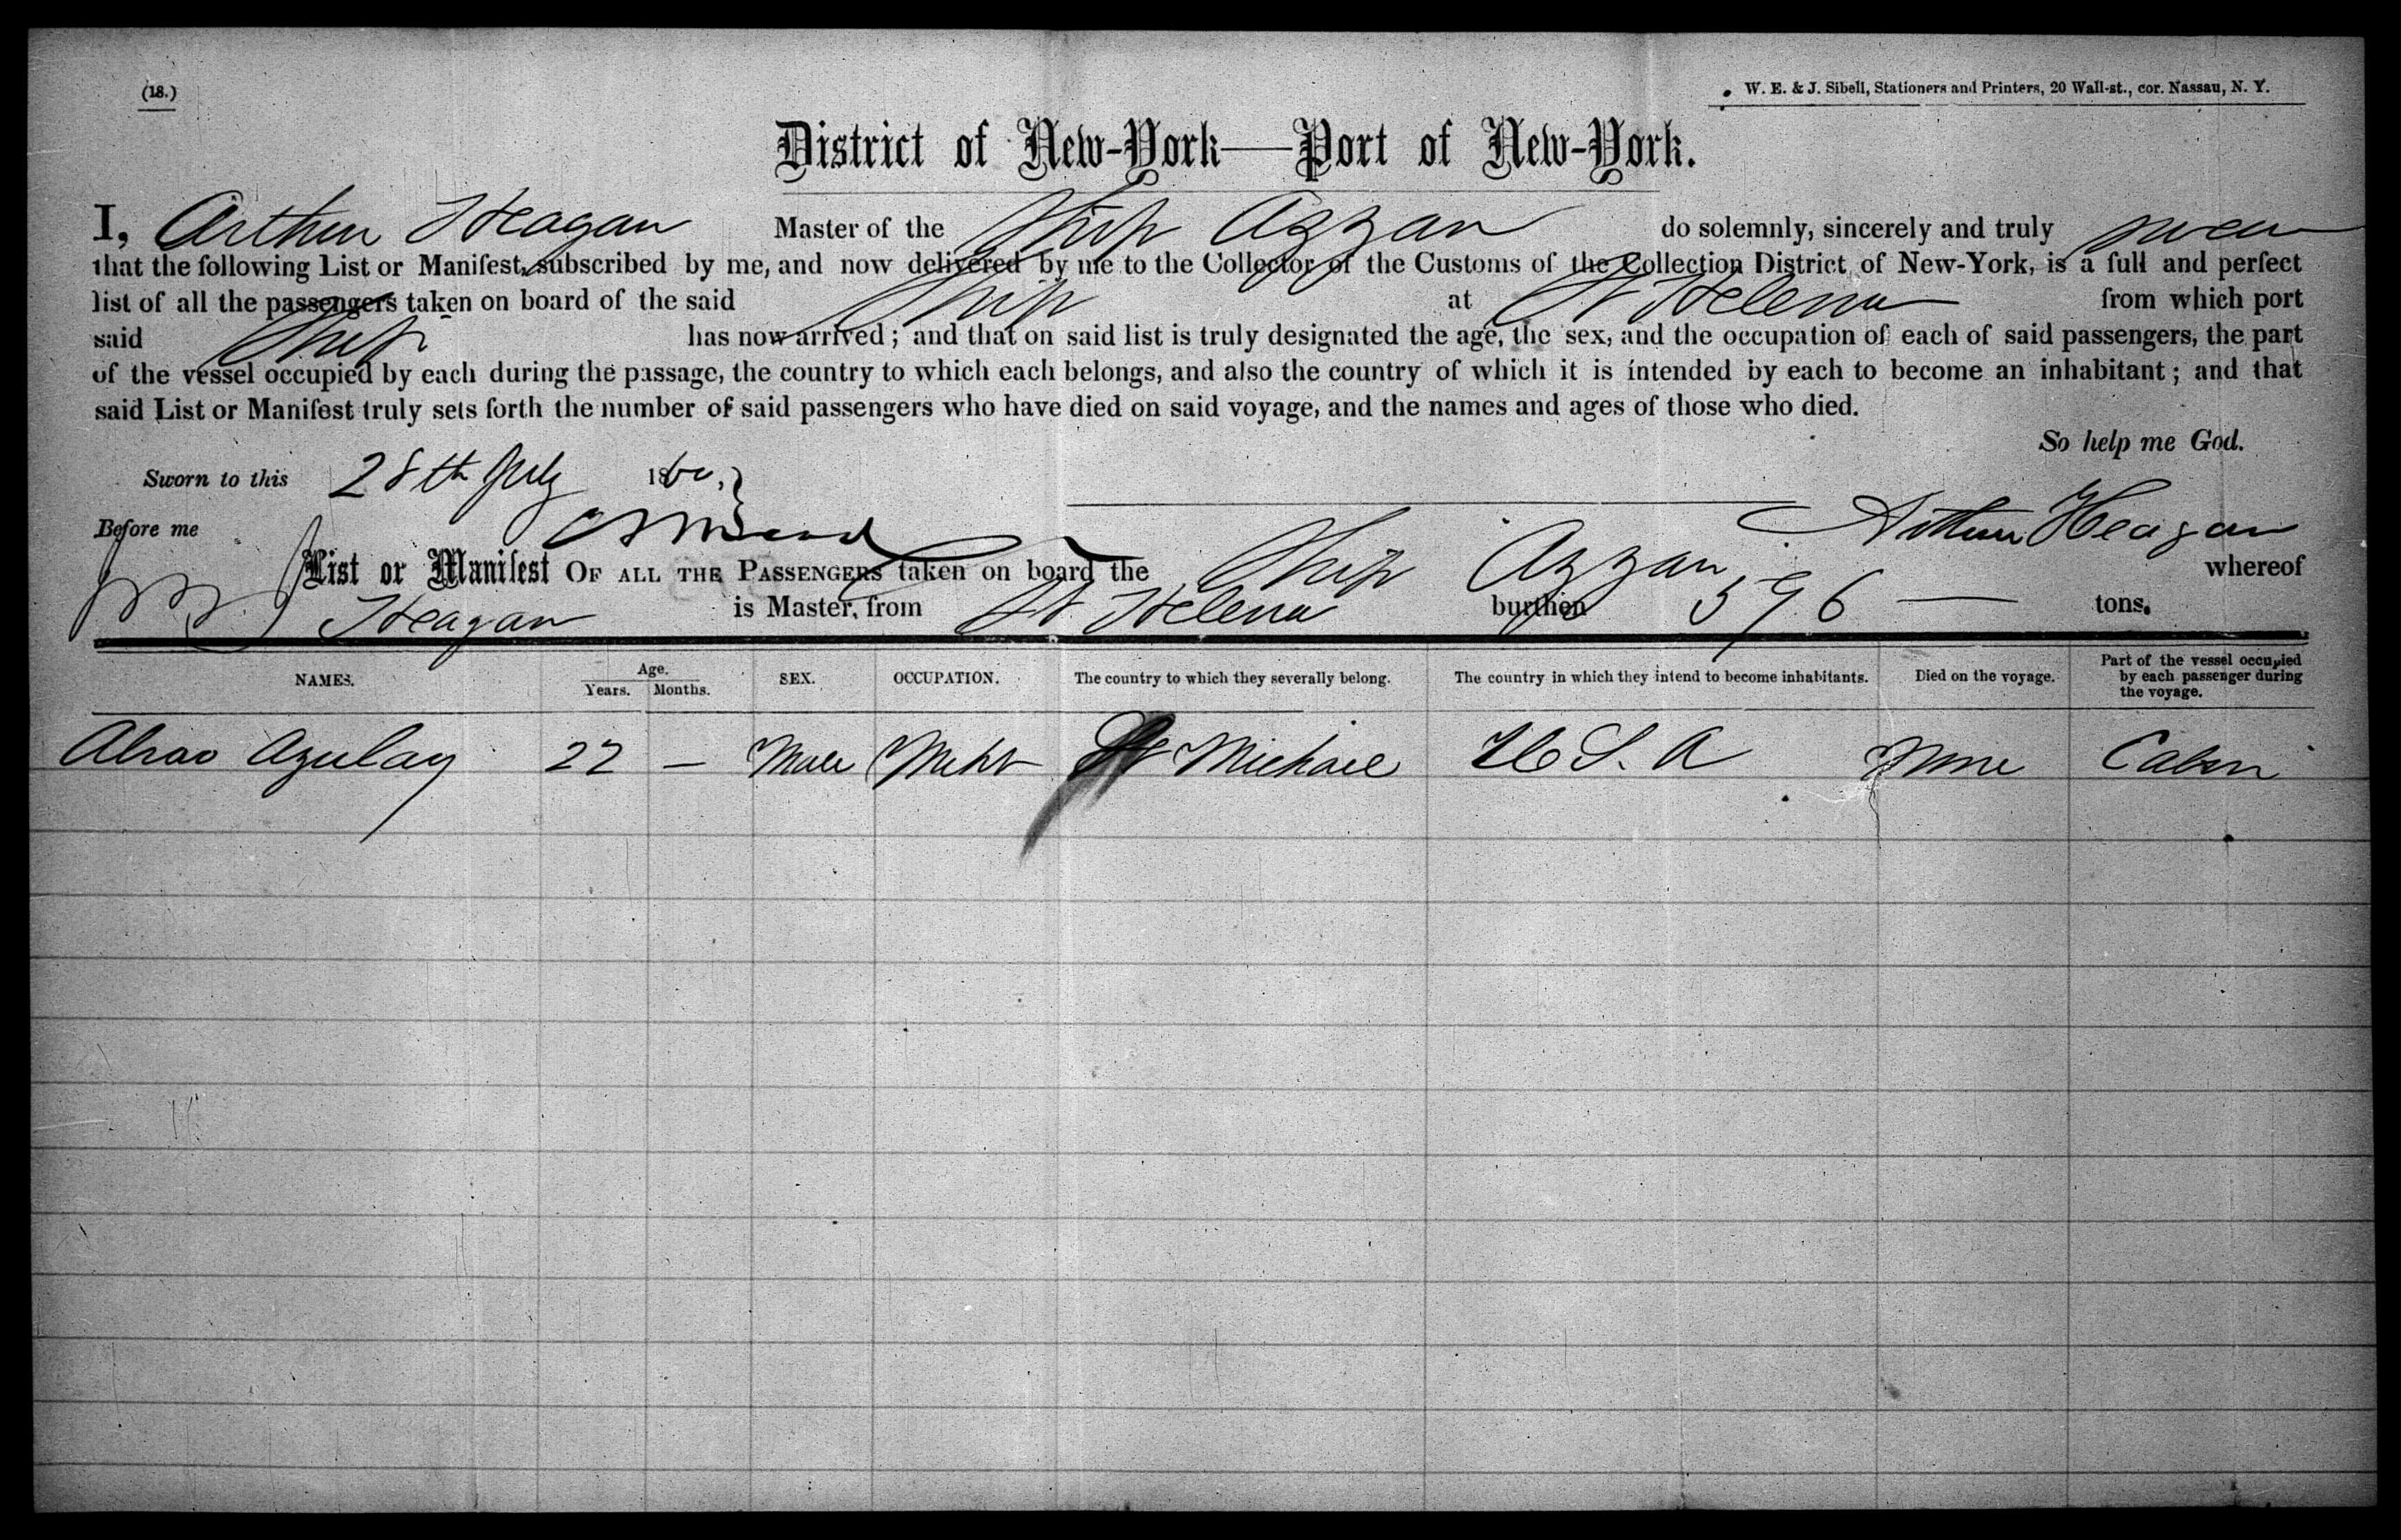 (18.)
W. E. & J. Sibell, Stationers and Printers, 20 Wall-st., cor. Nassau, N. Y.
District of New-York—Port of New-York.
I, Arthur Heagan Master of the Ship Azzan do solemnly, sincerely and truly swear
that the following List or Manifest, subscribed by me, and now delivered by me to the Collector of the Customs of the Collection District of New-York, is a full and perfect
list of all the passengers taken on board of the said Ship at St Helena from which port
said Ship has now arrived; and that on said list is truly designated the age, the sex, and the occupation of each of said passengers, the part
of the vessel occupied by each during the passage, the country to which each belongs, and also the country of which it is intended by each to become an inhabitant; and that
said List or Manifest truly sets forth the number of said passengers who have died on said voyage, and the names and ages of those who died.
So help me God.
Sworn to this 28th July 1860,
Before me Arthur Heagan
List or Manifest OF ALL THE PASSENGERS taken on board the Ship Azzan whereof
Heagan is Master, from St Helena burthen 596 — tons.
NAMES. Age. Years. Months. SEX. OCCUPATION. The country to which they severally belong. The country in which they intend to become inhabitants. Died on the voyage. Part of the vessel occupied by each passenger during the voyage.
Azulay 22 — Male Mcht St Michael U S. A None Cabin